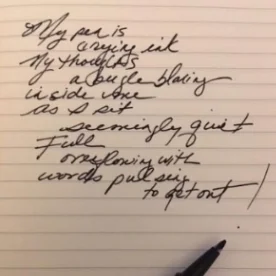 My pen is
crying ink
My thoughts
a bugle blaring
inside me
as I sit
seemingly quiet
Full
overflowing with
words pulsing
to get out